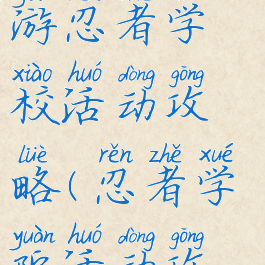 游忍者学
xiào huó dòng gōng
校活动攻
lüè rěn zhě xué
略(忍者学
yuàn huó dòng gōng
院活动攻